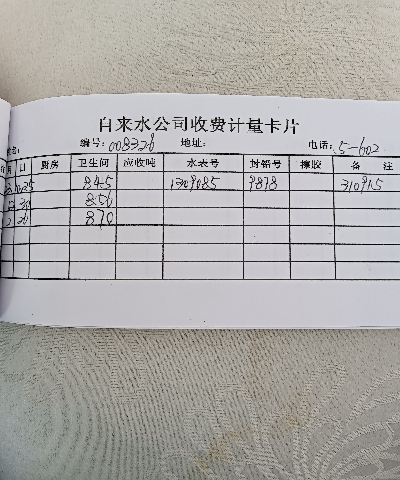 自来水公司收费计量卡片
编号: 008326 地址: 电话: 5-602
月 日 厨房 卫生间 应收吨 水表号 封铅号 擦胶 备 注
25 845 1309085 9878 310915
30 856
26 870